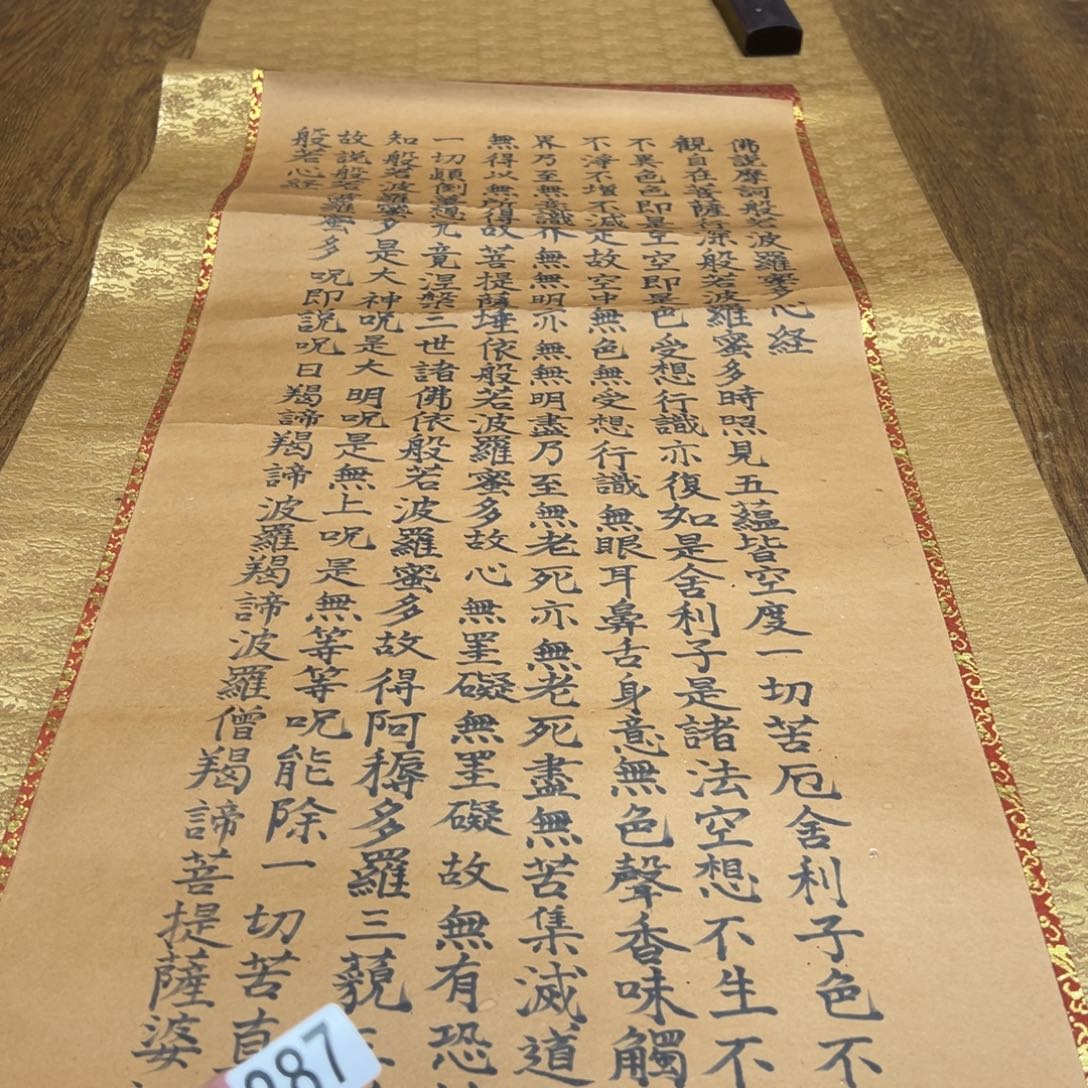 佛説摩訶般若波羅蜜多心経
観自在菩薩行深般若波羅蜜多時照見五蘊皆空度一切苦厄舍利子色不
不異色色即是空空即是色受想行識亦復如是舍利子是諸法空想不生不
不淨不増不滅是故空中無色無受想行識無眼耳鼻舌身意無色聲香味觸
界乃至無意識界無無明亦無無明盡乃至無老死亦無老死盡無苦集滅道
無得以無所得故菩提薩埵依般若波羅蜜多故心無罣礙無罣礙故無有恐
一切顛倒夢想究竟涅槃三世諸佛依般若波羅蜜多故得阿耨多羅三藐三
知般若波羅蜜多是大神呪是大明呪是無上呪是無等等呪能除一切苦真
故説般若波羅蜜多呪即説呪曰羯諦羯諦波羅羯諦波羅僧羯諦菩提薩婆
般若心経